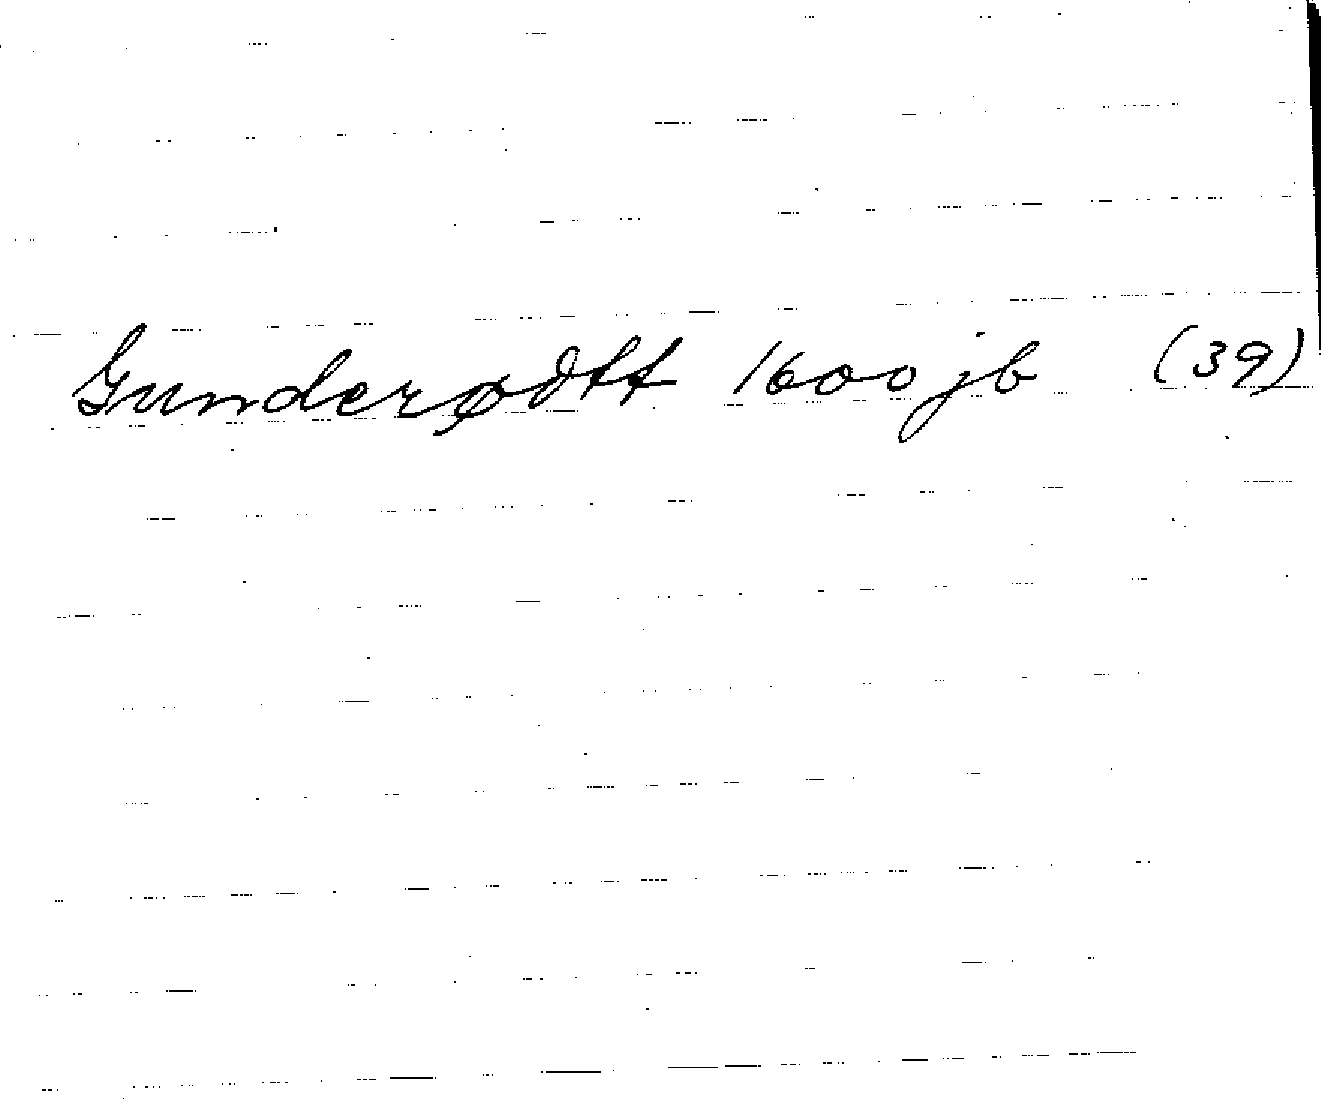 Gunderødtt 1600 jb (39)